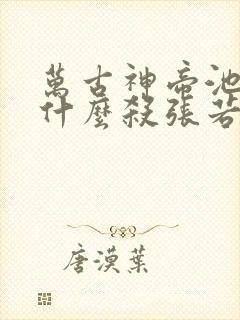 萬古神帝池
什麼殺張若
唐漠葉